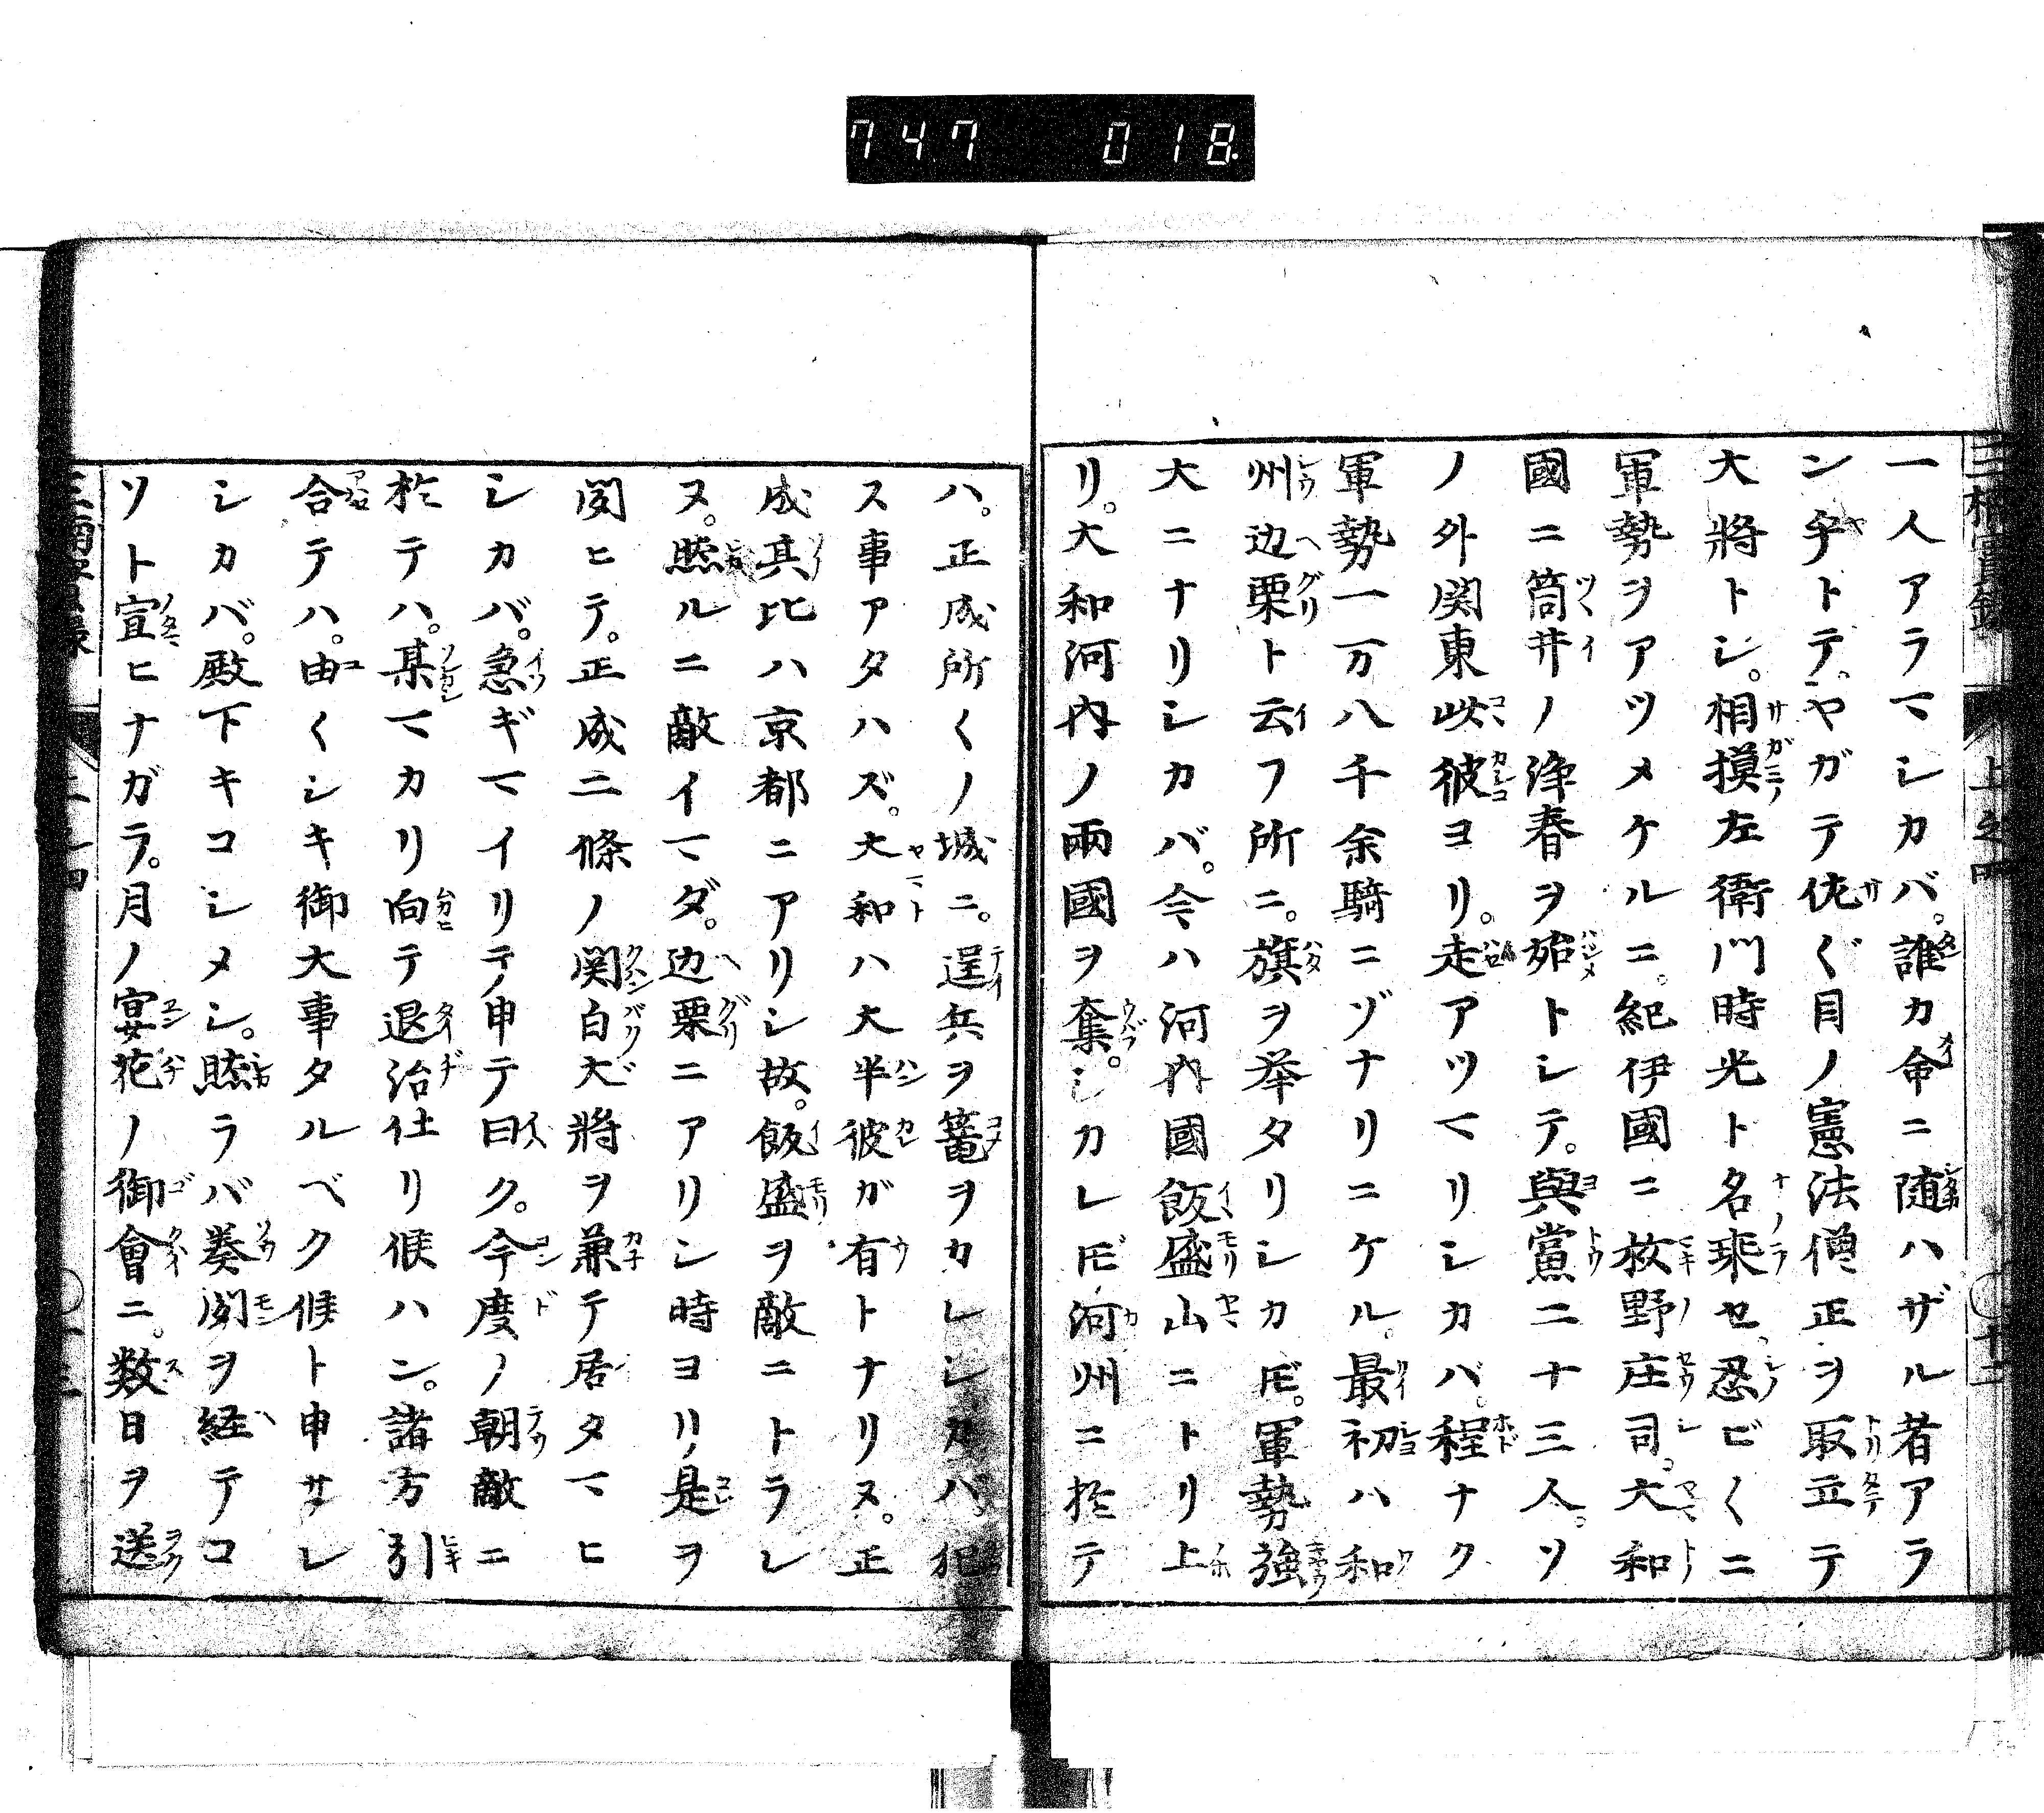 747 018.
一人アラマシカバ。誰カ命ニ随ハザル者アラ
ン乎トテ。ヤガテ佐々目ノ憲法僧正ヲ取立テ
大將トシ。相摸左衛門時光ト名乗セ。忍ビ〱ニ
軍勢ヲアツメケルニ。紀伊國ニ枚野庄司。大和
國ニ筒井ノ浄春ヲ始トシテ。與黨二十三人。ソ
ノ外関東此彼ヨリ。走アツマリシカバ。程ナク
軍勢一万八千余騎ニゾナリニケル。最初ハ和
州辺栗ト云フ所ニ。旗ヲ举タリシカ𪜈。軍勢強
大ニナリシカバ。今ハ河内國飯盛山ニトリ上
リ。大和河内ノ兩國ヲ奪。シカレ𪜈河州ニ於テ
ハ。正成所〱ノ城ニ。逞兵ヲ篭ヲカレシカバ。犯
ス事アタハズ。大和ハ大半彼ガ有トナリヌ。正
成其比ハ京都ニアリシ故。飯盛ヲ敵ニトラレ
ヌ。然ルニ敵イマダ。辺栗ニアリシ時ヨリ是ヲ
聞ヒテ。正成二條ノ関白大將ヲ兼テ居タマヒ
シカバ。急ギマイリテ申テ曰ク。今度ノ朝敵ニ
於テハ。某マカリ向テ退治仕リ候ハン。諸方引
合テハ。由〱シキ御大事タルベク候ト申サレ
シカバ。殿下キコシメシ。然ラバ奏聞ヲ経テコ
ソト宣ヒナガラ。月ノ宴花ノ御會ニ。数日ヲ送